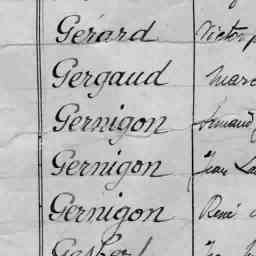 Gérard Victor
Gergaud Marc
Gernigon Armand
Gernigon Jean
Gernigon René